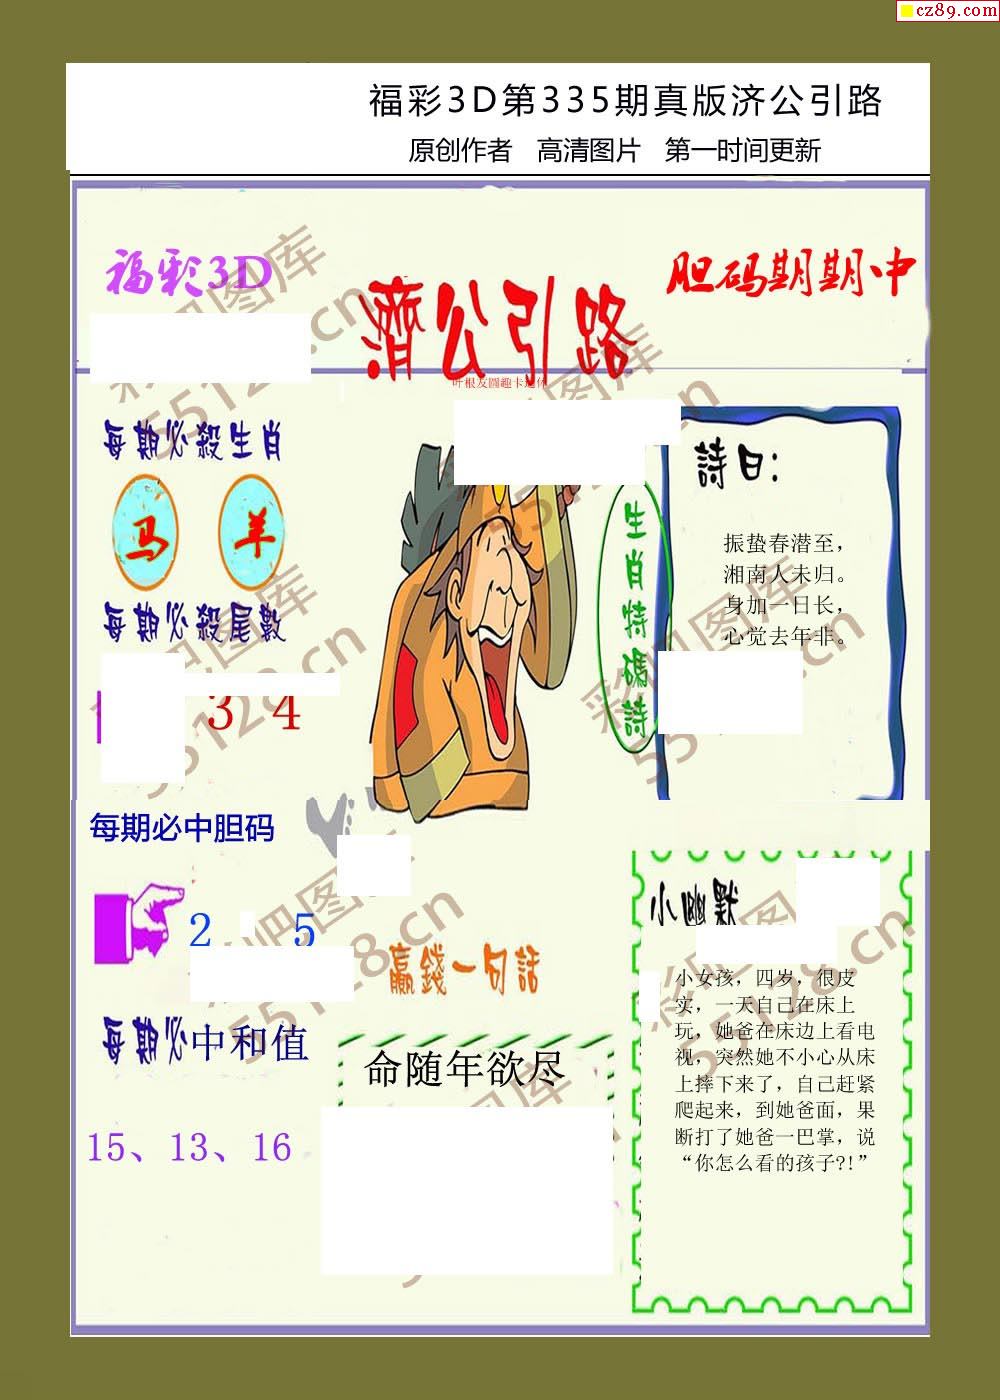 cz89.com
福彩3D第335期真版济公引路
原创作者 高清图片 第一时间更新
福彩3D
濟公引路
胆码期期中
叶根友圆趣卡通体
每期必殺生肖
马 羊
每期必殺尾數
3 4
生肖特碼詩
詩曰：
振蛰春潜至，
湘南人未归。
身加一日长，
心觉去年非。
每期必中胆码
2 5
赢錢一句話
命随年欲尽
每期必中和值
15、13、16
小幽默
小女孩，四岁，很皮
实，一天自己在床上
玩，她爸在床边上看电
视，突然她不小心从床
上摔下来了，自己赶紧
爬起来，到她爸面，果
断打了她爸一巴掌，说
“你怎么看的孩子?!”
彩吧图库
55128.cn
彩吧图库
55128.cn
彩吧图库
55128.cn
彩吧图库
55128.cn